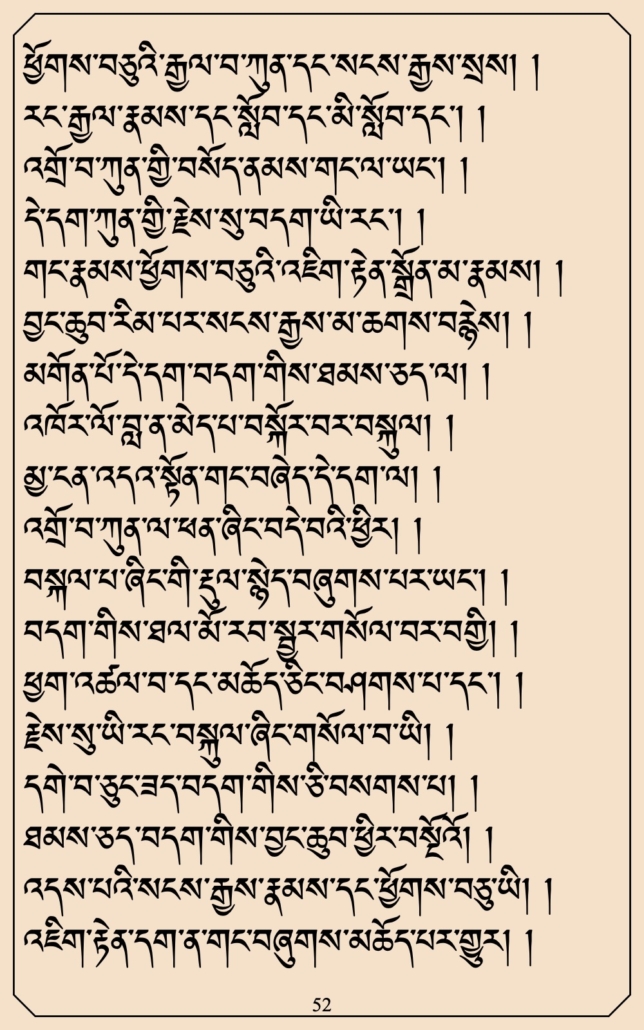 ཕྱོགས་བཅུའི་རྒྱལ་བ་ཀུན་དང་སངས་རྒྱས་སྲས། །
རང་རྒྱལ་རྣམས་དང་སློབ་དང་མི་སློབ་དང་། །
འགྲོ་བ་ཀུན་གྱི་བསོད་ནམས་གང་ལ་ཡང་། །
དེ་དག་ཀུན་གྱི་རྗེས་སུ་བདག་ཡི་རང་། །
གང་རྣམས་ཕྱོགས་བཅུའི་འཇིག་རྟེན་སྒྲོན་མ་རྣམས། །
བྱང་ཆུབ་རིམ་པར་སངས་རྒྱས་མ་ཆགས་བརྙེས། །
མགོན་པོ་དེ་དག་བདག་གིས་ཐམས་ཅད་ལ། །
འཁོར་ལོ་བླ་ན་མེད་པ་བསྐོར་བར་བསྐུལ། །
མྱ་ངན་འདའ་སྟོན་གང་བཞེད་དེ་དག་ལ། །
འགྲོ་བ་ཀུན་ལ་ཕན་ཞིང་བདེ་བའི་ཕྱིར། །
བསྐལ་པ་ཞིང་གི་རྡུལ་སྙེད་བཞུགས་པར་ཡང་། །
བདག་གིས་ཐལ་མོ་རབ་སྦྱར་གསོལ་བར་བགྱི། །
ཕྱག་འཚལ་བ་དང་མཆོད་ཅིང་བཤགས་པ་དང་། །
རྗེས་སུ་ཡི་རང་བསྐུལ་ཞིང་གསོལ་བ་ཡི། །
དགེ་བ་ཅུང་ཟད་བདག་གིས་ཅི་བསགས་པ། །
ཐམས་ཅད་བདག་གིས་བྱང་ཆུབ་ཕྱིར་བསྔོའོ། །
འདས་པའི་སངས་རྒྱས་རྣམས་དང་ཕྱོགས་བཅུ་ཡི། །
འཇིག་རྟེན་དག་ན་གང་བཞུགས་མཆོད་པར་གྱུར། །
52